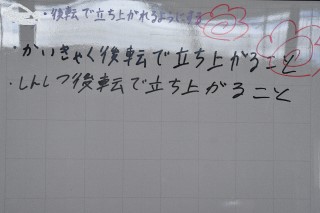 ・後転で立ち上がれるようにする
・かいきゃく後転で立ち上がること
・しんしつ後転で立ち上がること